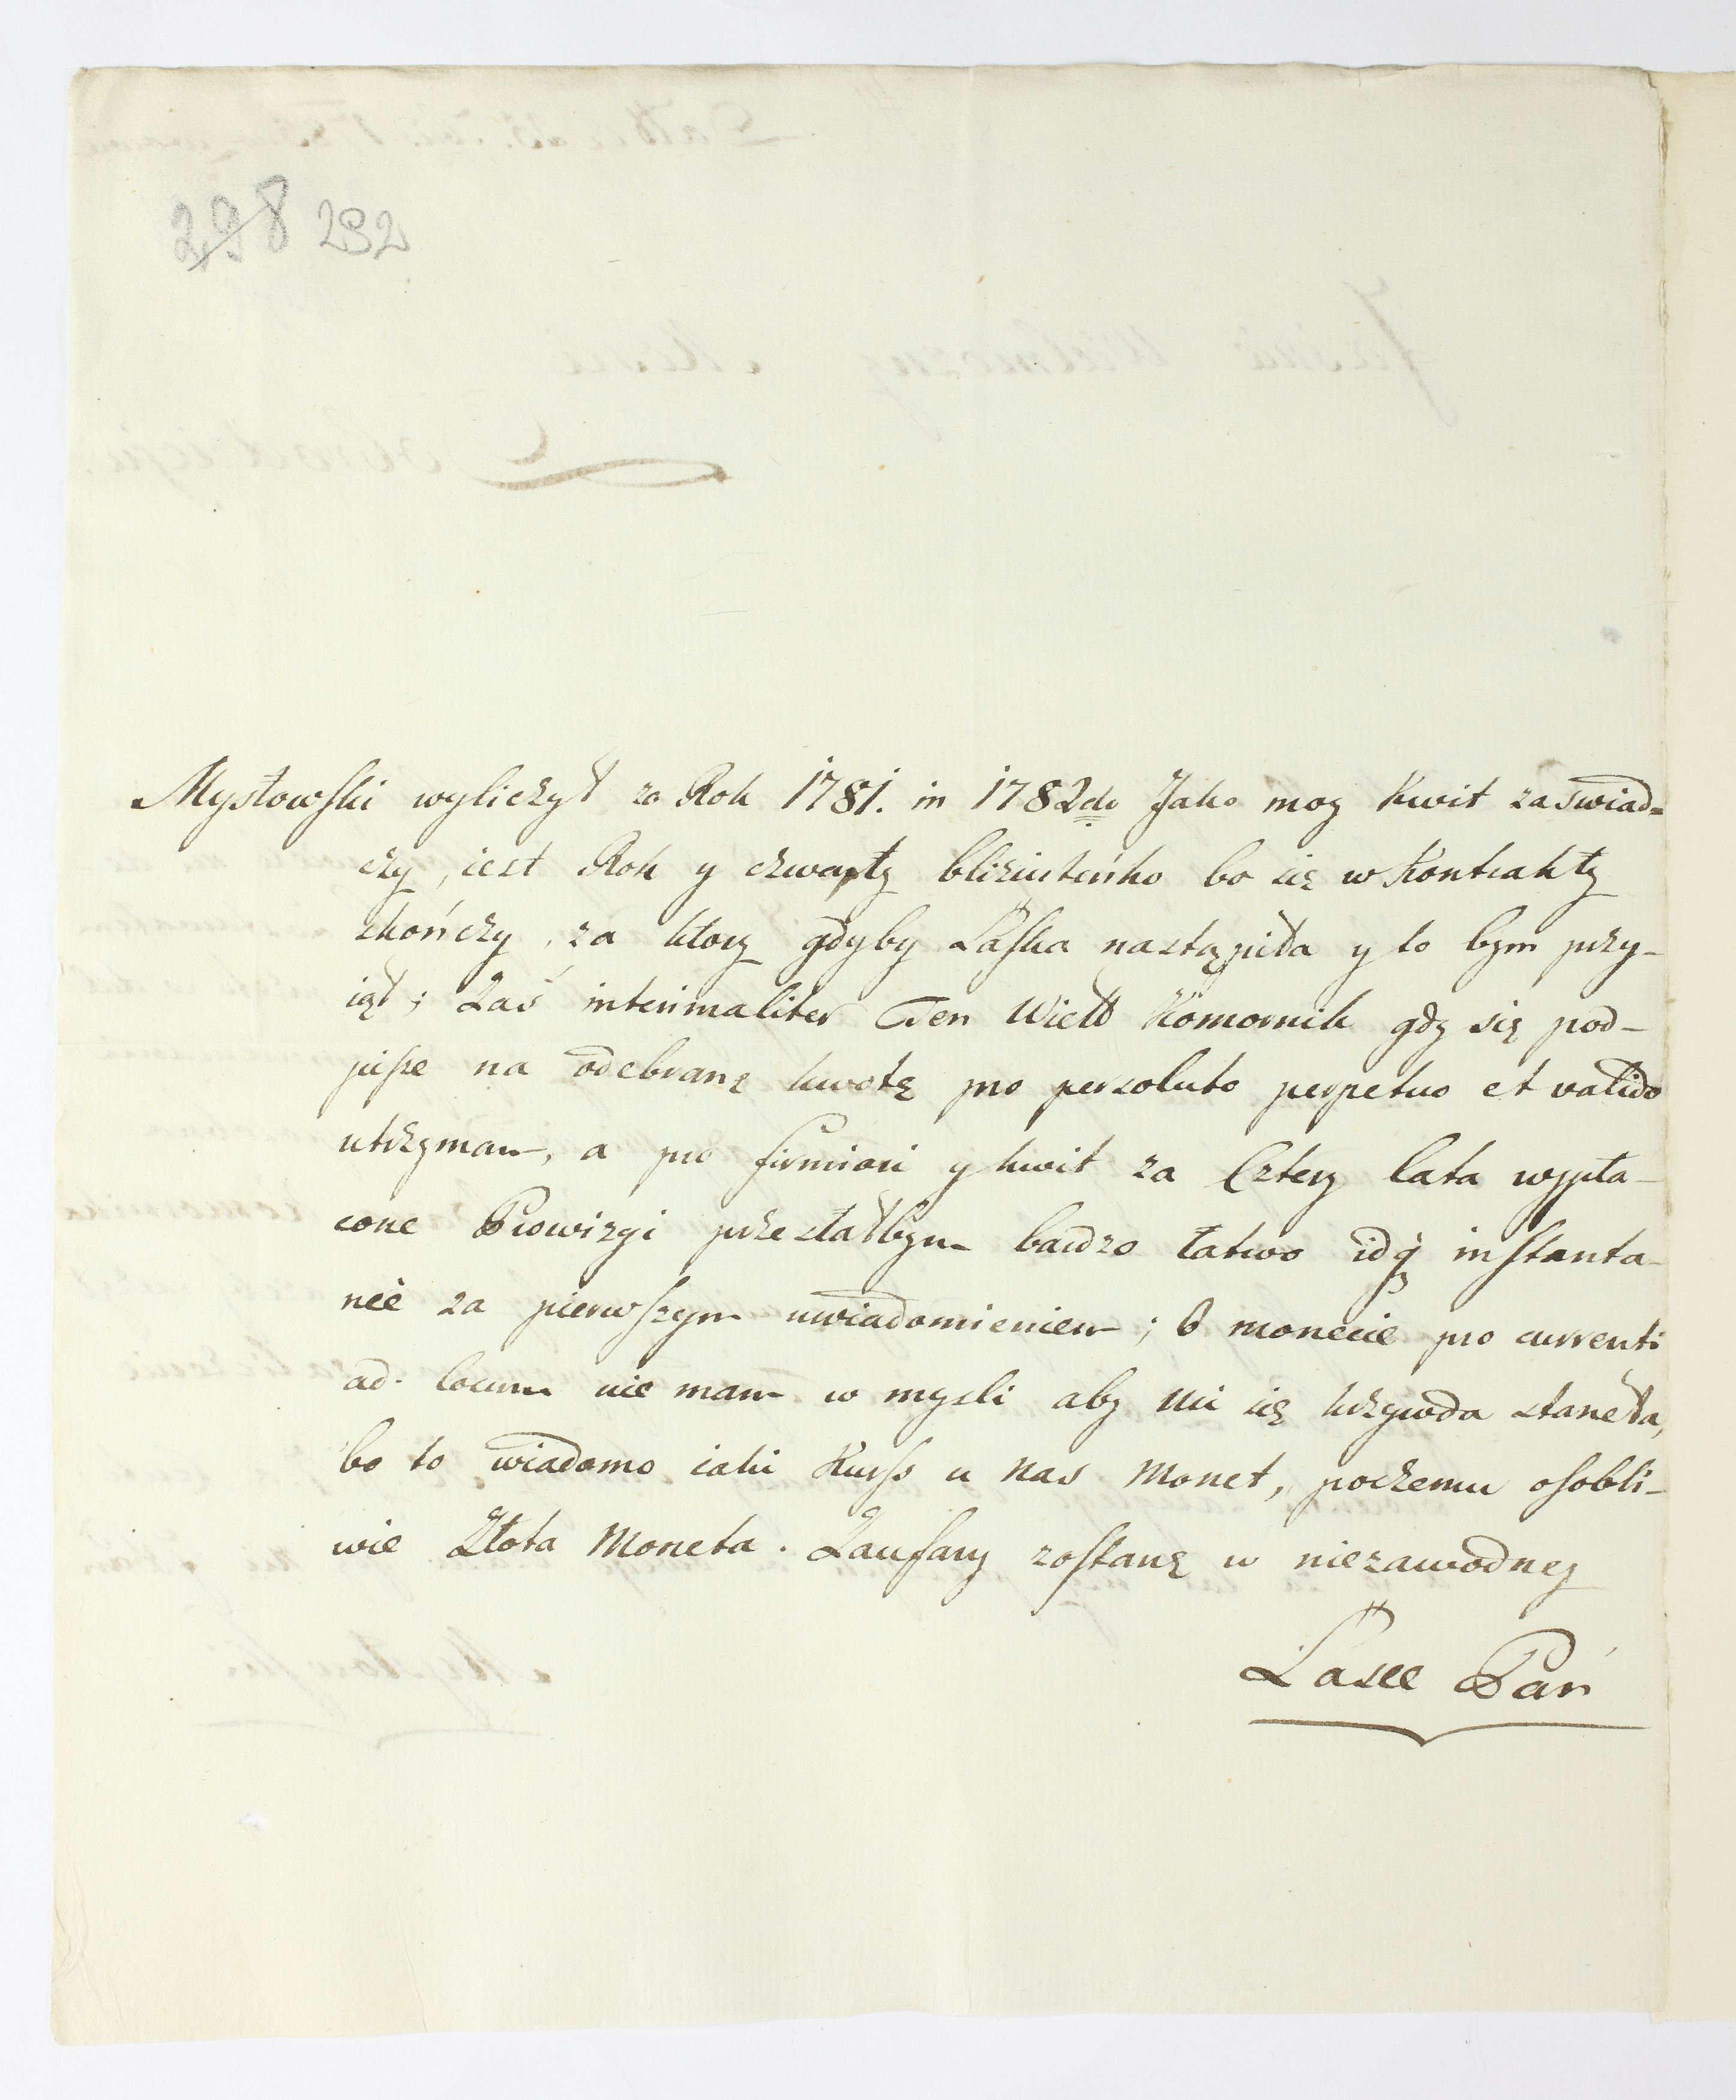 298 292
Mysłowski wyliczył za Rok 1781. in 1782do Jako moy Kwit zaswiad=
czy, iest Rok y czwarty bliziuteńko bo się w Kontrakty
skończy, za ktory gdyby Łaska nastąpiła y to bym przy-
iął; Zaś interimaliter Ten Wielb Komornik gdy się pod-
pisze na odebraną kwotę pro persoluto perpetuo et valido
utrzymam, a pro firmiori y kwit za Cztery lata wypła-
cone Prowizyi przesłałbym bardzo łatwo idq3 instanta-
neè za pierwszym uwiadomieniem; O monecie pro currenti
ad locum nie mam w mysli aby mi się krzywda staneła,
bo to wiadomo iaki Kurss u nas Monet, poczemu osobli-
wie Złota Moneta. Zaufany zostanę w niezawodney
Łasce Pań